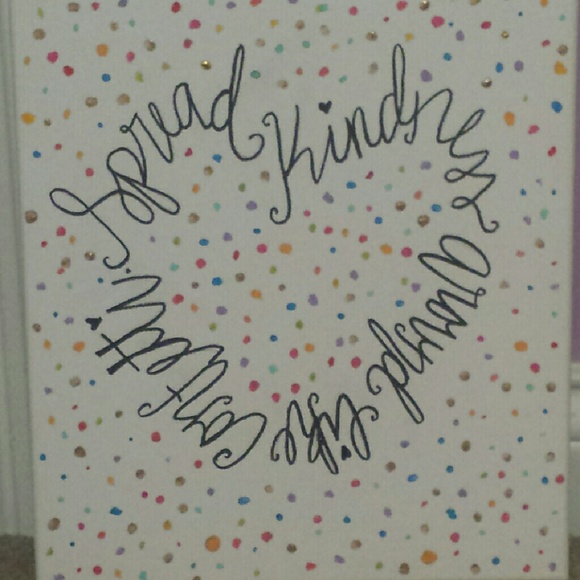 Spread Kindness Around like confetti.